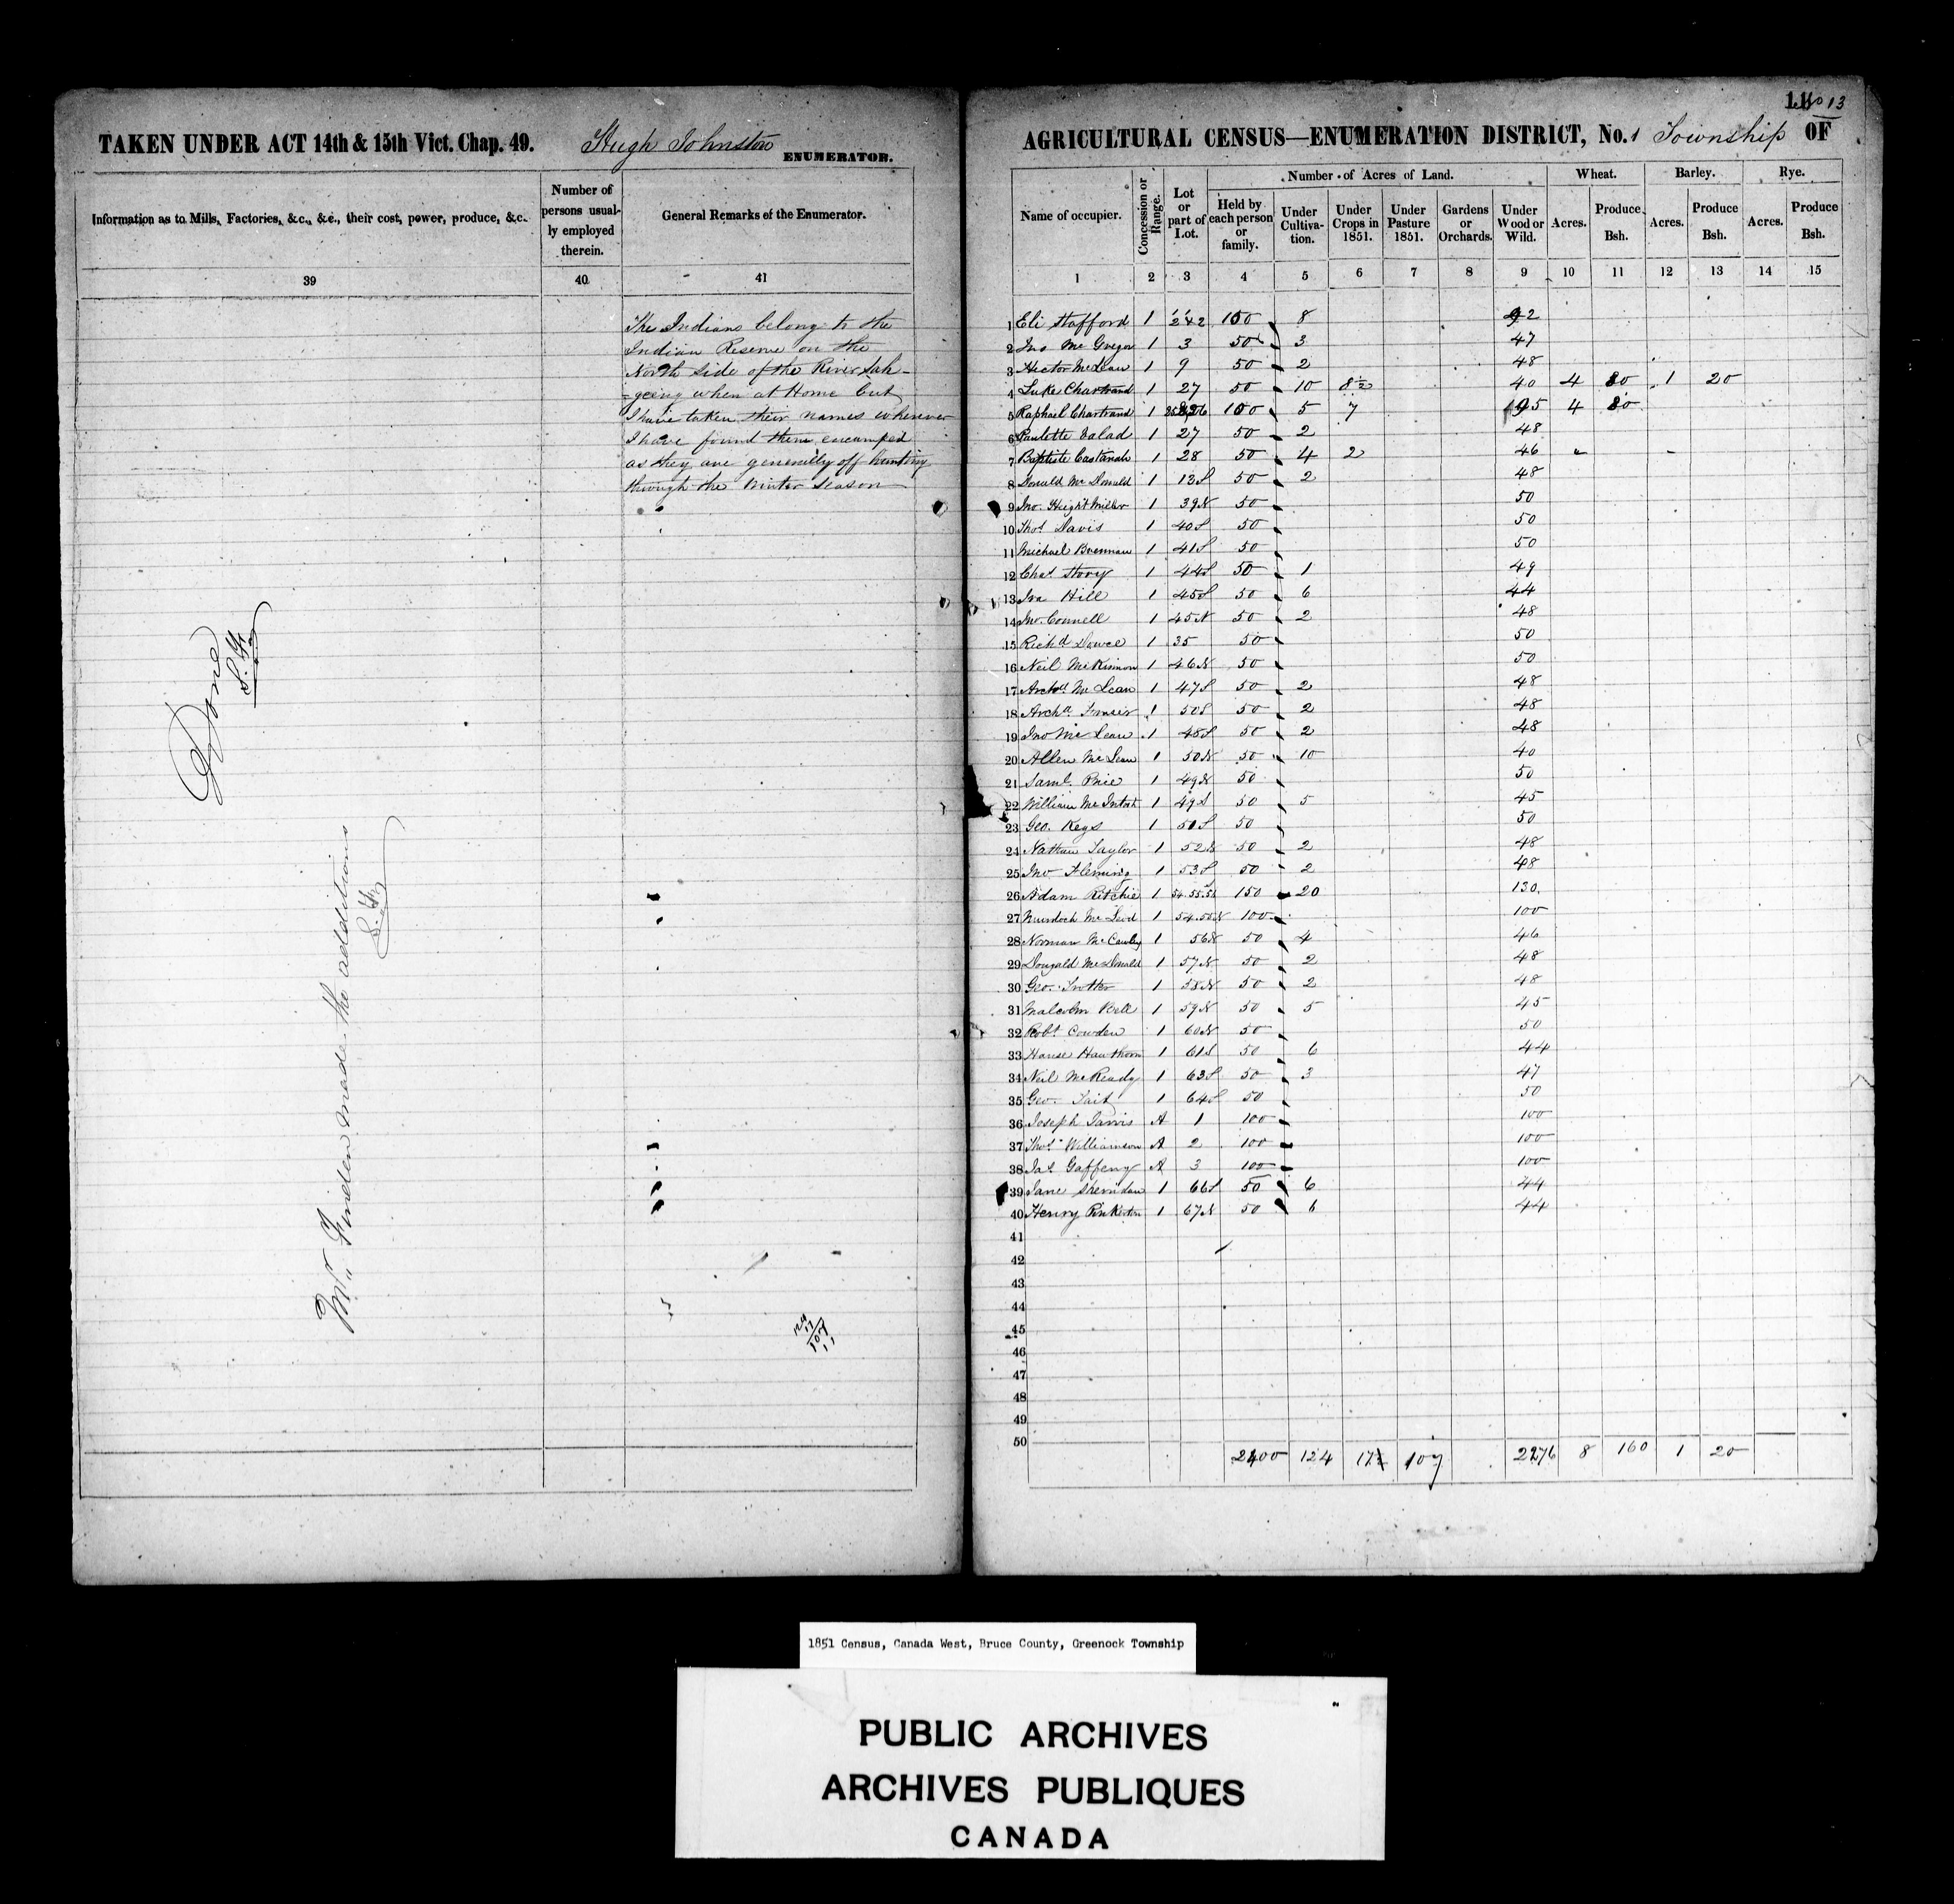 TAKEN UNDER ACT 14th & 15th Vict. Chap. 49. Hugh Johnston ENUMERATOR.
Information as to Mills, Factories, &c., &c., their cost, power, produce, &c.
Number of persons usually employed therein.
General Remarks of the Enumerator.
39 40 41
The Indians belong to the
Indian Reserve on the
North side of the River Sah-
-geeng when at Home but
I have taken their names wherever
I have found them encamped
as they are generally off hunting
through the Winter Season
Done
S. Y.
Mr. Finden made the additions
S. Y.
124
17
107
AGRICULTURAL CENSUS—ENUMERATION DISTRICT, No. 1 Township OF
No 13
Name of occupier. Concession or Range. Lot or part of Lot. Number of Acres of Land. Wheat. Barley. Rye.
Held by each person or family. Under Cultivation. Under Crops in 1851. Under Pasture 1851. Gardens or Orchards. Under Wood or Wild. Acres. Produce Bsh. Acres. Produce Bsh. Acres. Produce Bsh.
1 2 3 4 5 6 7 8 9 10 11 12 13 14 15
1 Eli Stafford 1 100 8 92
2 Jno Mc Gregor 1 3 50 3 47
3 Hector McLean 1 9 50 2 48
4 Luke Chartrand 1 27 50 10 8½ 40 4 80 1 20
5 Raphael Chartrand 1 100 5 7 4 80
6 Paulette Valad 1 27 50 2 48
7 Baptiste Castanah 1 28 50 4 2 46
8 Donald Mc Donald 1 13 S 50 2 48
9 Jno. Height Miller 1 39 N 50 50
10 Thos Davis 1 40 S 50 50
11 Michael Brennan 1 41 S 50 50
12 Chas Story 1 44 S 50 1 49
13 Ira Hill 1 45 S 50 6 44
14 Jno. Connell 1 45 N 50 2 48
15 Richd 1 35 50 50
16 Neil McKinnon 1 46 N 50 50
17 Archd Mc Lean 1 47 S 50 2 48
18 Archd Fraser 1 50 S 50 2 48
19 Jno Mc Lean 1 48 S 50 2 48
20 Allen Mc Lean 1 50 N 50 10 40
21 Saml. Price 1 49 N 50 50
22 William Mc Intosh 1 49 S 50 5 45
23 Geo. Keys 1 51 S 50 50
24 Nathan Taylor 1 52 N 50 2 48
25 Jno Fleming 1 53 S 50 2 48
26 Adam Ritchie 1 150 20 130
27 Murdock Mc Leod 1 100 100
28 Norman McCauley 1 56 N 50 4 46
29 Dougald McDonald 1 57 N 50 2 48
30 Geo. Trotter 1 58 N 50 2 48
31 Malcolm Bell 1 59 N 50 5 45
32 Robt Cowden 1 60 N 50 50
33 Hanse Hawthorn 1 61 S 50 6 44
34 Neil McReady 1 63 S 50 3 47
35 Geo. Tait 1 64 S 50 50
36 Joseph Jarvis A 1 100 100
37 Thos. Williamson A 2 100 100
38 Jas Gaffeny A 3 100 100
39 Jane Sheridan 1 66 S 50 6 44
40 Henry Pinkerton 1 67 N 50 6 44
41
42
43
44
45
46
47
48
49
50
2400 124 107 2276 8 160 1 20
1851 Census, Canada West, Bruce County, Greenock Township
PUBLIC ARCHIVES
ARCHIVES PUBLIQUES
CANADA